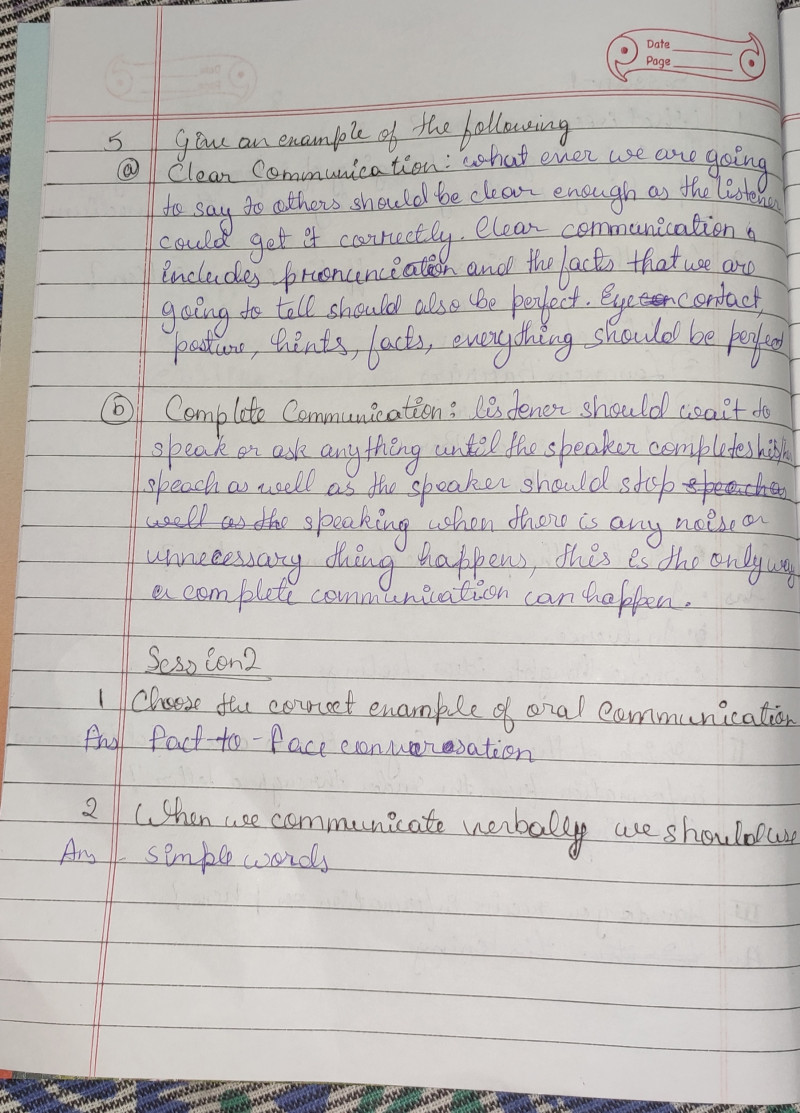 Date
Page
5 Give an example of the following
ⓐ Clear Communication: what ever we are going
to say to others should be clear enough as the listener
could get it correctly. Clear communication
includes pronunciation and the facts that we are
going to tell should also be perfect. Eye contact,
posture, hints, facts, everything should be perfect
ⓑ Complete Communication: listener should wait to
speak or ask anything until the speaker completes his
speach as well as the speaker should stop speach as
well as the speaking when there is any noise or
unnecessary thing happens, this is the only way
a complete communication can happen.
Session2
1 Choose the correct enample of oral Communication
Ans fact-to-face conversation
2 When we communicate verbally we should use
Ans - simple words